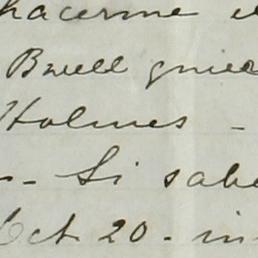 hacerme e
Bwell quiee
Holmes -
- Si sabe
Oct 20 - in